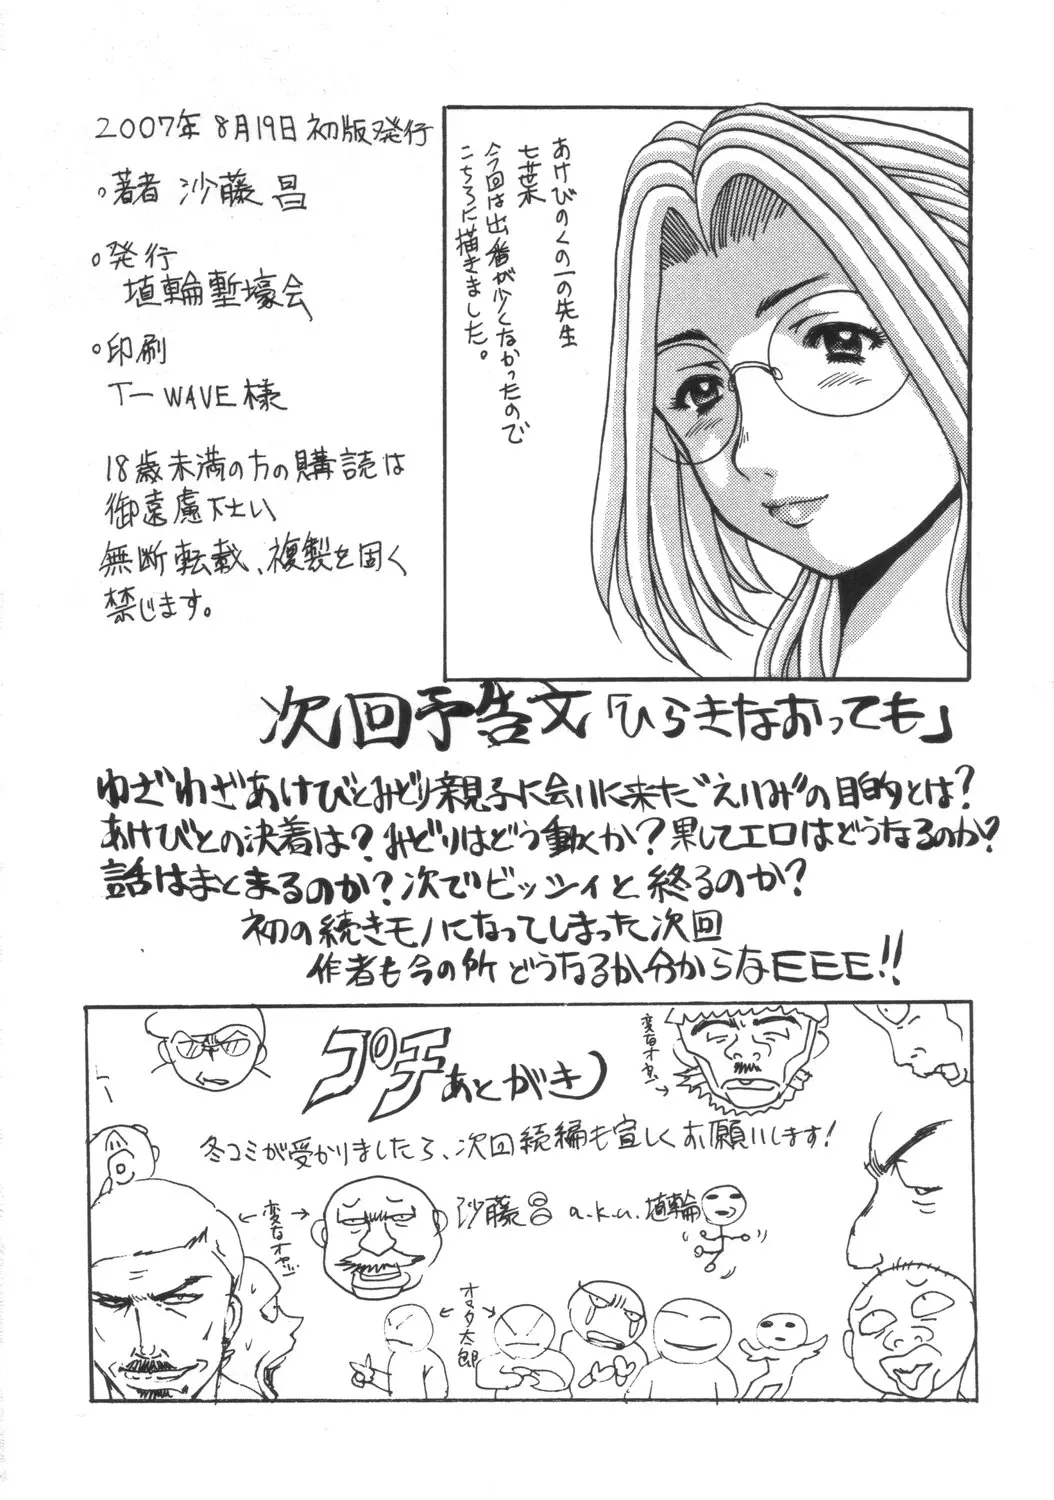 2007年8月19日初版発行
○著者 沙藤昌
○発行
埴輪塹壕会
○印刷
T-WAVE様
18歳未満の方の購読は
御遠慮下さい
無断転載、複製を固く
禁じます。
あけびのくの一の先生
七葉
今回は出番が少くなかったので
こちらに描きました。
次回予告文「ひらきなおっても」
わざわざあけびとみどり親子に会いに来た"えいみ"の目的とは?
あけびとの決着は?みどりはどう動くか?果してエロはどうなるのか?
話はまとまるのか?次でビッシィと終るのか?
初の続きモノになってしまった次回
作者も今の所どうなるか分からなEEE!!
プチあとがき
変なオヤジ→
冬コミが受かりましたら、次回続編も宜しくお願いします!
←変なオヤジ→
沙藤昌 a.k.a.埴輪
←オマタ太郎→